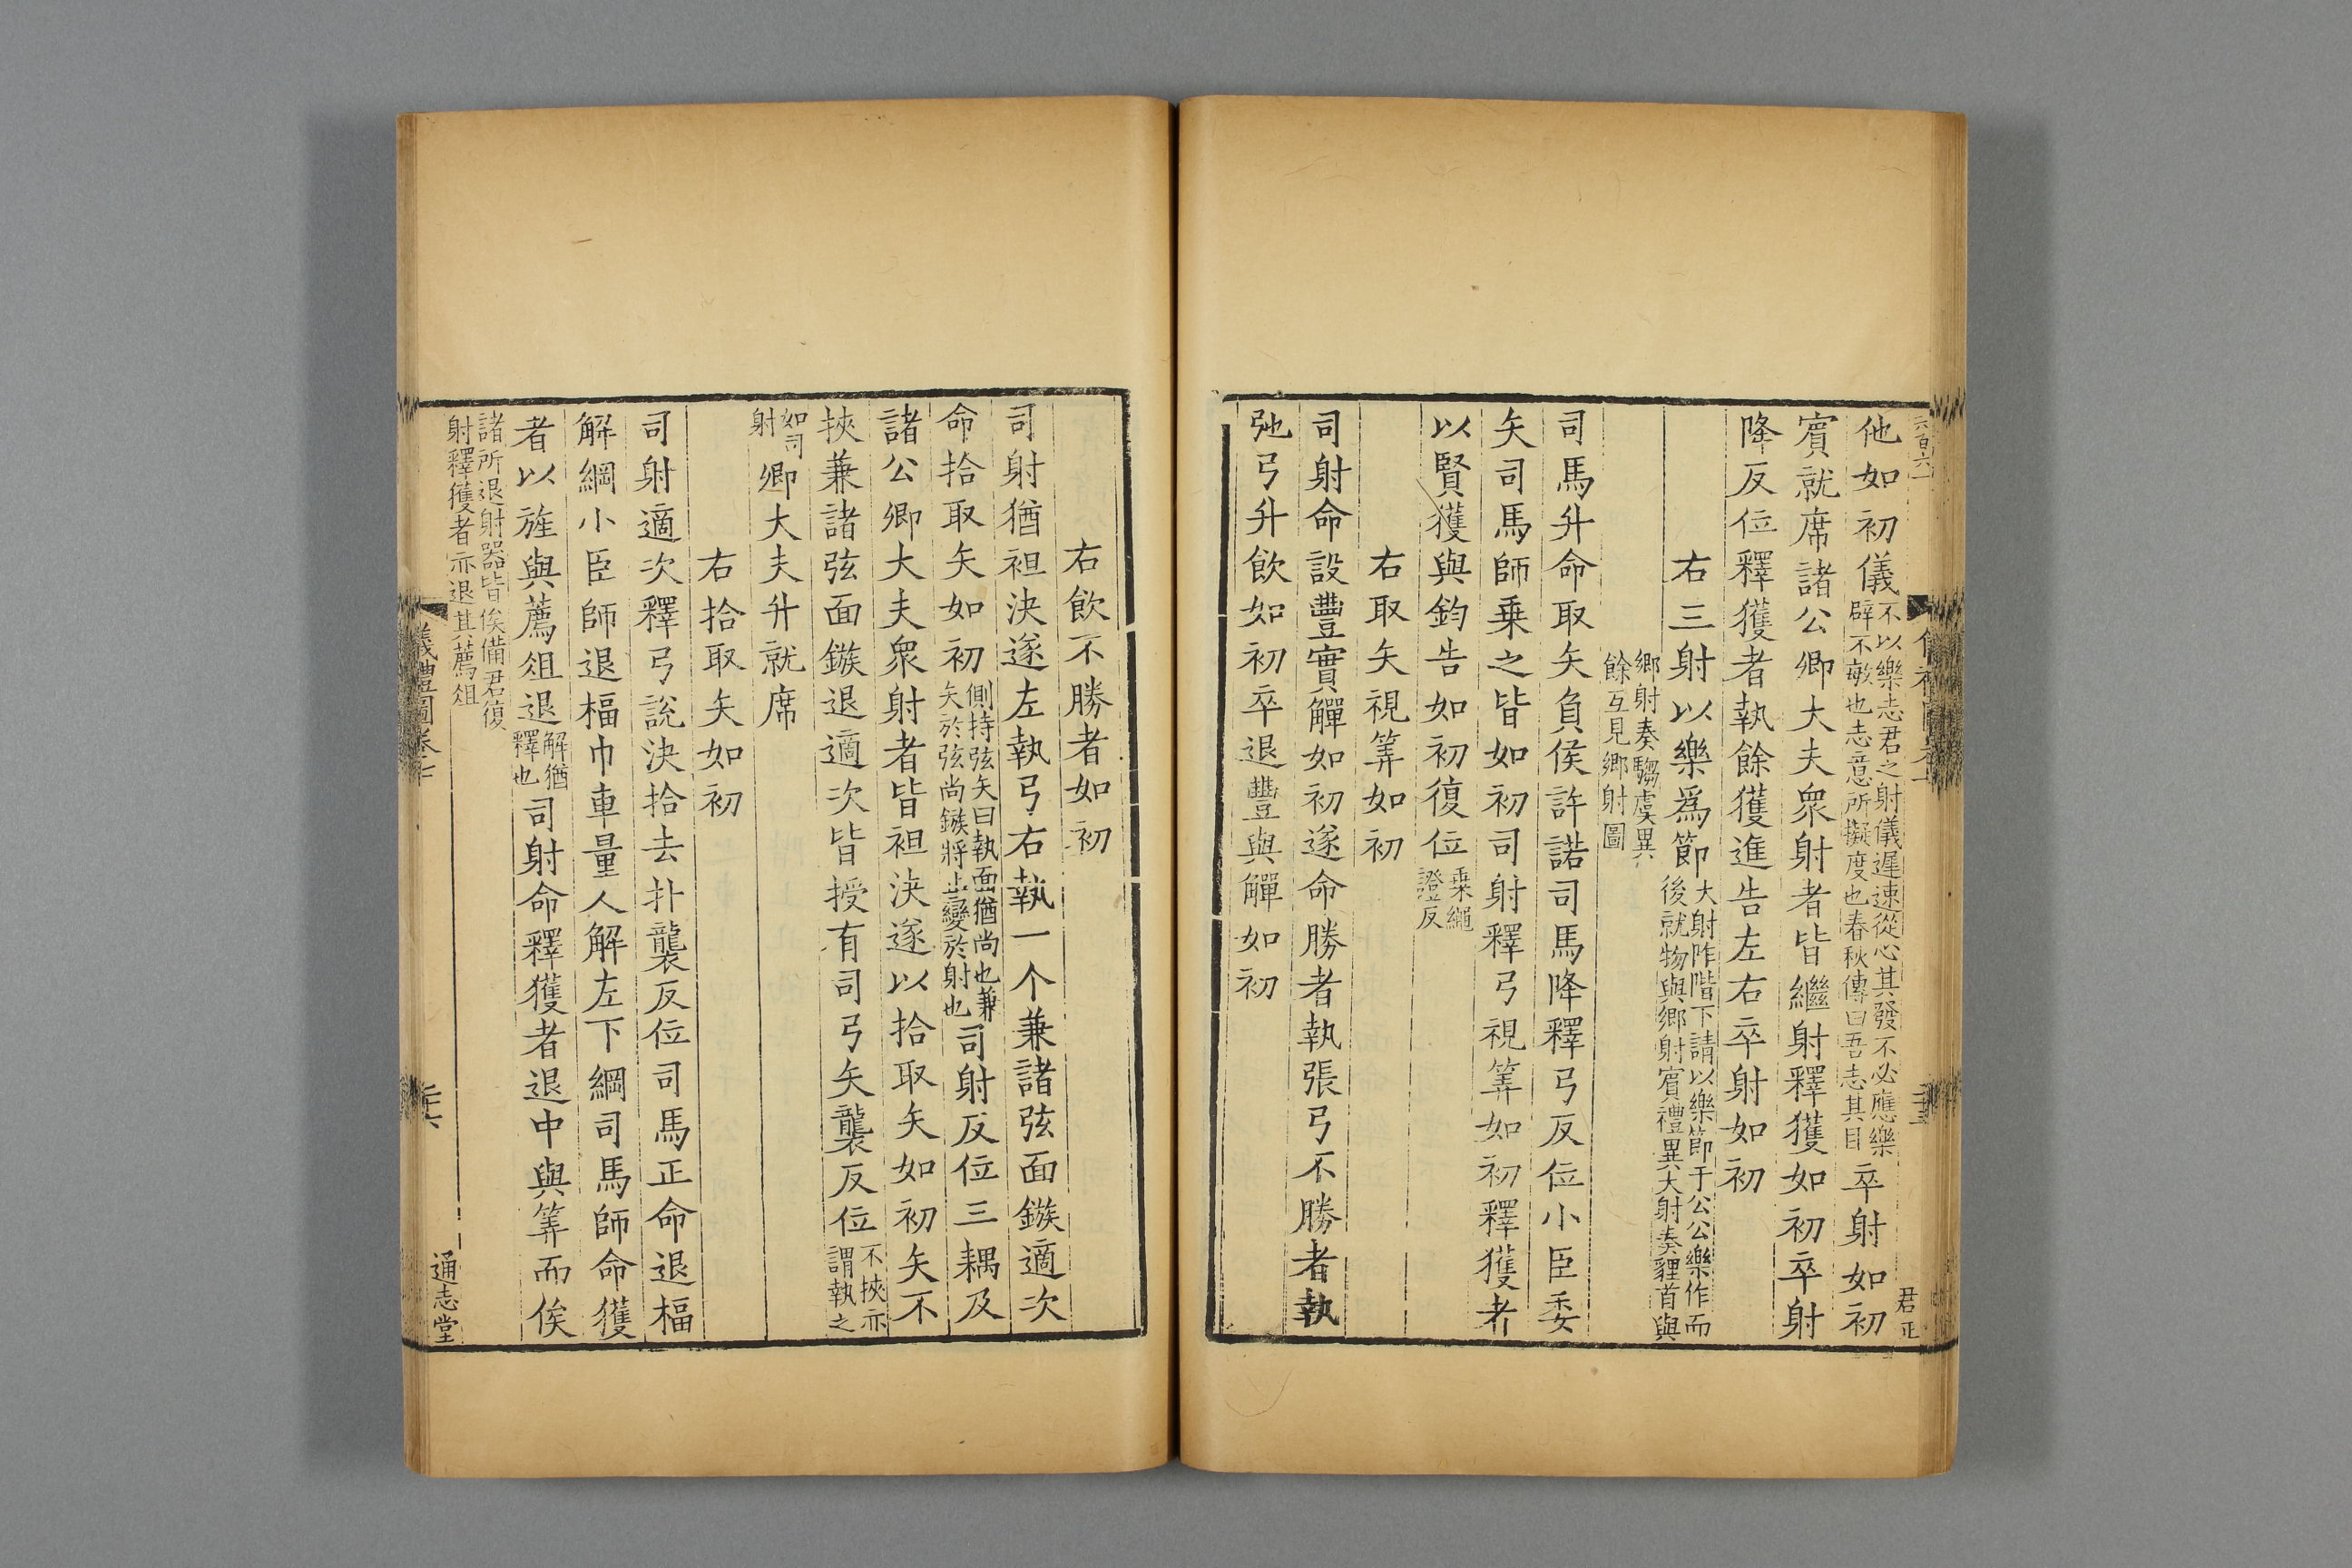 他如初儀不以樂志君之射儀遲速從心其發不必應樂辟不敏也志意所擬度也春秋傳曰吾志其目卒射如初
賔就席諸公卿大夫衆射者皆繼射釋獲如初卒射
降反位釋獲者執餘獲進告左右卒射如初
右三射以樂爲節大射阼階下請以樂節于公公樂作而後就物與鄉射賔禮異大射奏貍首與
鄉射奏騶虞異餘互見鄉射圖
司馬升命取矢負侯許諾司馬降釋弓反位小臣委
矢司馬師乗之皆如初司射釋弓視筭如初釋獲者
以賢獲與鈞告如初復位乗繩證反
右取矢視筭如初
司射命設豐實觶如初遂命勝者執張弓不勝者執
弛弓升飲如初卒退豐與觶如初
右飲不勝者如初
司射猶袒決遂左執弓右執一个兼諸弦面鏃適次
命拾取矢如初側持弦矢曰執面猶尚也兼矢於弦尚鏃將止變於射也司射反位三耦及
諸公卿大夫衆射者皆袒決遂以拾取矢如初矢不
挾兼諸弦面鏃退適次皆授有司弓矢襲反位不挾亦謂執之
如司射卿大夫升就席
右拾取矢如初
司射適次釋弓說決拾去扑襲反位司馬正命退楅
解綱小臣師退楅巾車量人解左下綱司馬師命獲
者以旌與薦俎退解猶釋也司射命釋獲者退中與筭而俟
諸所退射器皆俟備君復射釋獲者亦退其薦俎
儀禮圖卷七
通志堂